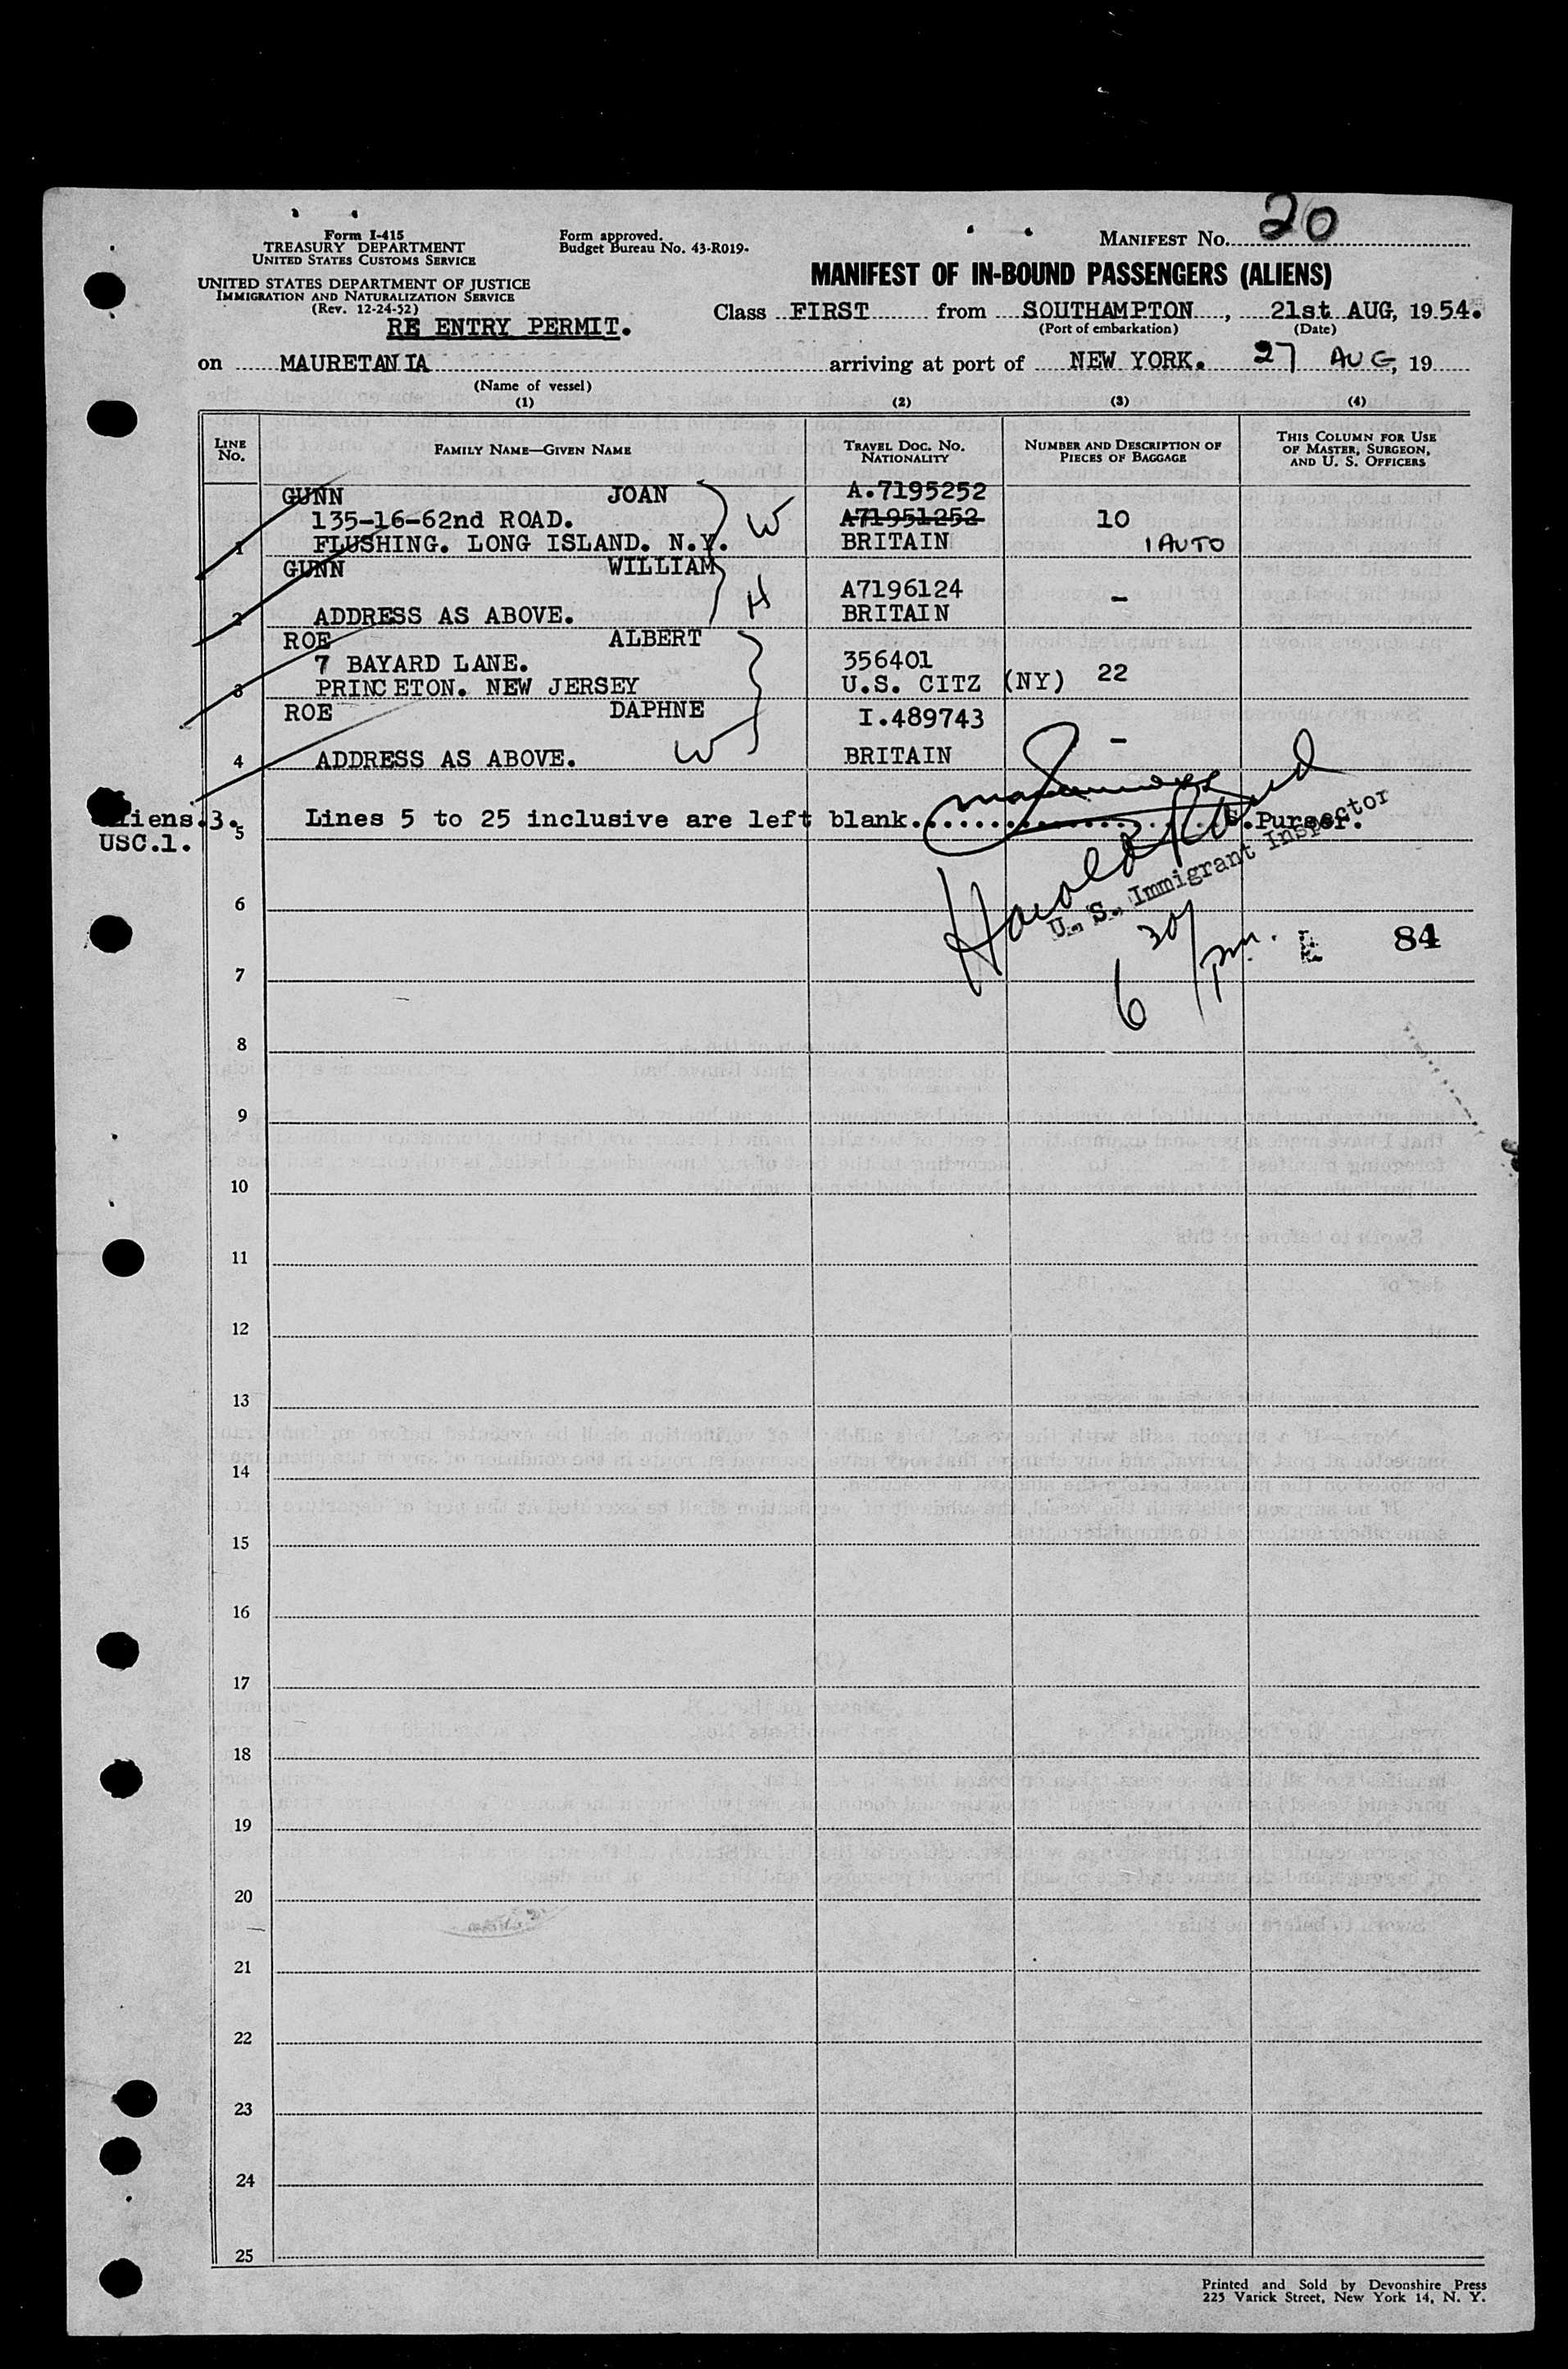 20
Form I-415
TREASURY DEPARTMENT
UNITED STATES CUSTOMS SERVICE
Form approved.
Budget Bureau No. 43-R019-
MANIFEST NO.
UNITED STATES DEPARTMENT OF JUSTICE
IMMIGRATION AND NATURALIZATION SERVICE
(Rev. 12-24-52)
MANIFEST OF IN-BOUND PASSENGERS (ALIENS)
RE ENTRY PERMIT.
Class FIRST from SOUTHAMPTON, 21st AUG, 1954.
(Port of embarkation) (Date)
on MAURETANIA arriving at port of NEW YORK. 27 AUG, 19
(Name of vessel)
(1) (2) (3) (4)
LINE NO. FAMILY NAME—GIVEN NAME TRAVEL DOC. NO. NATIONALITY NUMBER AND DESCRIPTION OF PIECES OF BAGGAGE THIS COLUMN FOR USE OF MASTER, SURGEON, AND U. S. OFFICERS
GUNN JOAN A.7195252
135-16-62nd ROAD. W A71951252 10
1 FLUSHING. LONG ISLAND. N.Y. BRITAIN 1 AUTO
GUNN WILLIAM
H A7196124 -
2 ADDRESS AS ABOVE. BRITAIN
ROE ALBERT
7 BAYARD LANE. 356401
3 PRINCETON. NEW JERSEY U.S. CITZ (NY) 22
ROE DAPHNE I.489743
-
4 ADDRESS AS ABOVE. W BRITAIN
Aliens.3. 5 Lines 5 to 25 inclusive are left blank. S.Purser.
USC.1.
U. S. Immigrant Inspector
6
6 30/pm. 84
7
8
9
10
11
12
13
14
15
16
17
18
19
20
21
22
23
24
25
Printed and Sold by Devonshire Press
225 Varick Street, New York 14, N. Y.